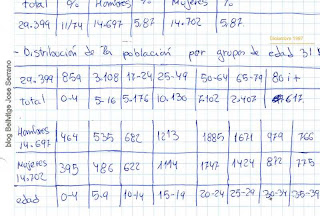 total % Hombres % Mujeres %
29.399 11/74 14.697 5.87 14.702 5.87
Diciembre 1987
- Distribución de la población por grupos de edad 31
29.399 859 3.108 17-24 25-49 50-64 65-79 80 i +
total 0-4 5-16 5.176 10.130 7.102 2.407 617
Hombres 464 535 682 1213 1885 1671 979 766
14.697
Mujeres 395 486 622 1114 1747 1424 872 775
14.702
edad 0-4 5-9 10-14 15-19 20-24 25-29 30-34 35-39
blog Bellvitge Jose Serrano